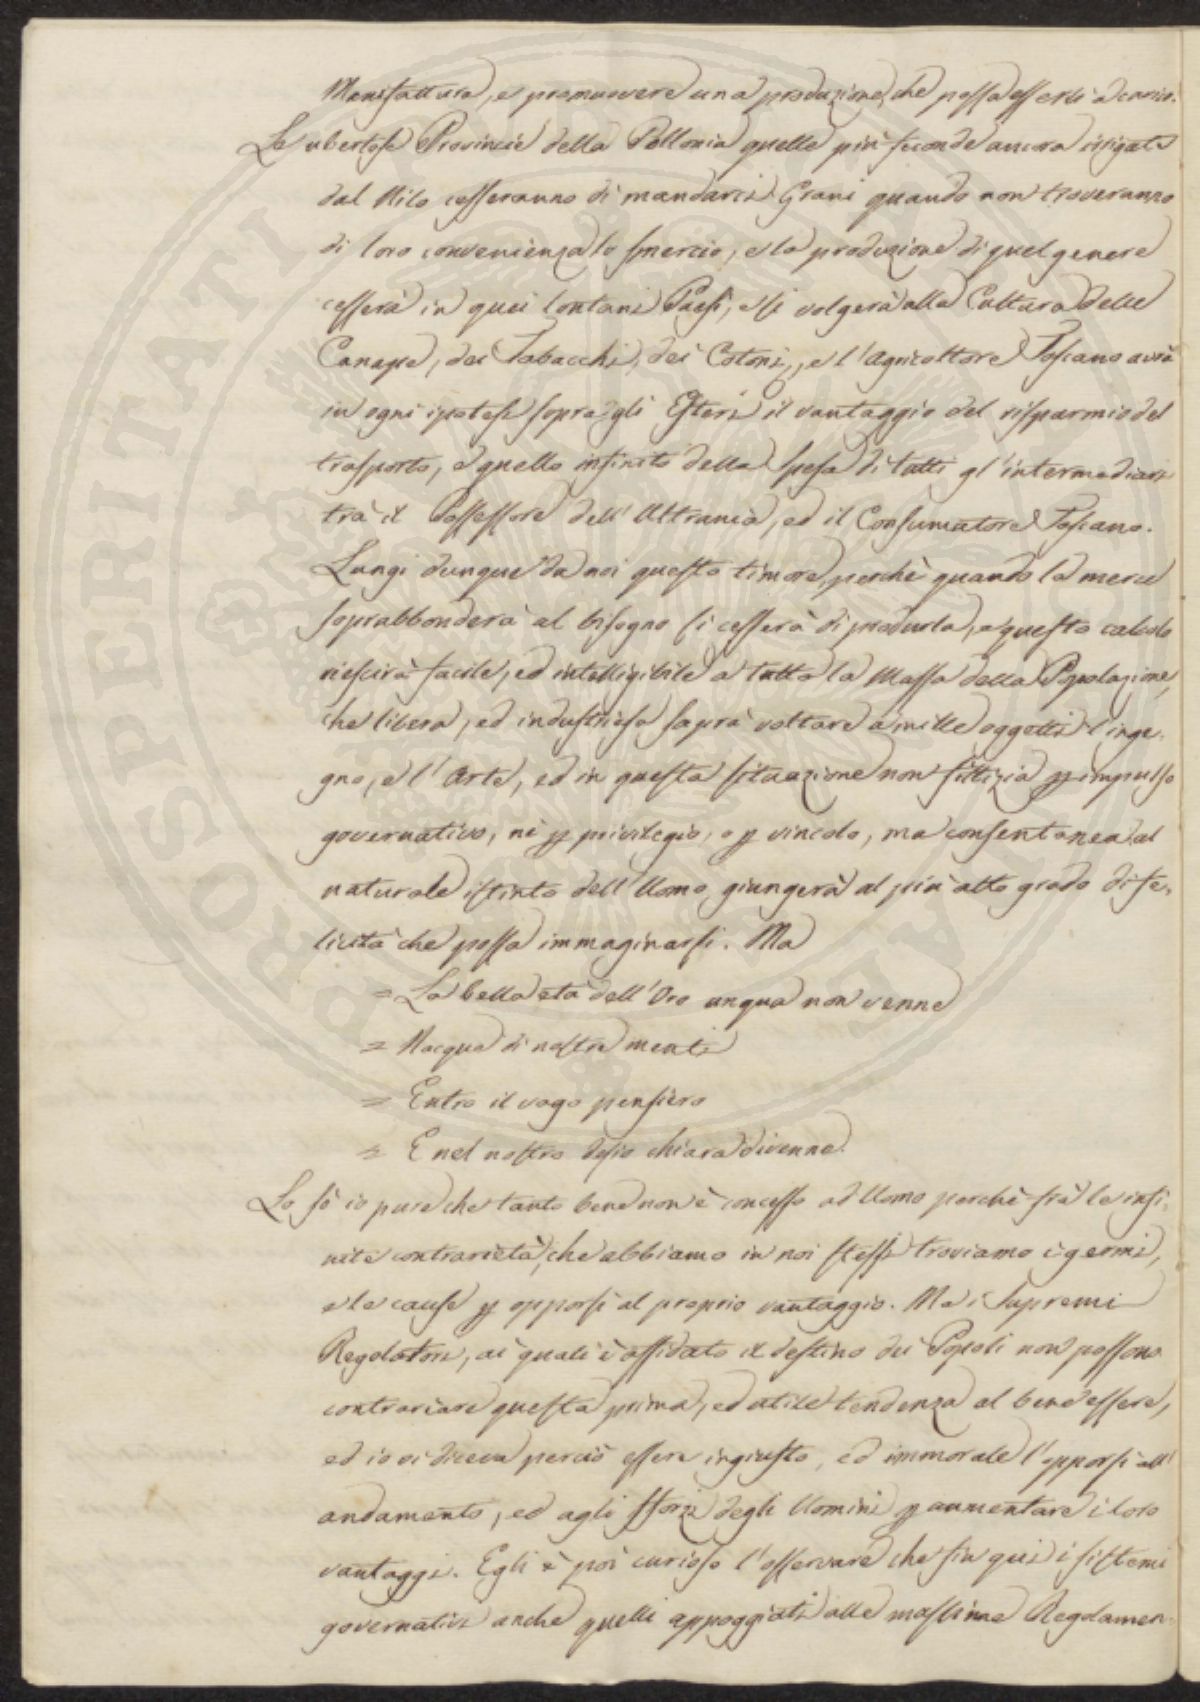 Manifattura, e promuovere una produzione, che possa esserli a carico.
Le ubertose Provincie della Pollonia quelle più feconde ancora irrigate
dal Nilo cesseranno di mandarci Grani quando non troveranno
di loro convenienza lo smercio, e la produzione di quel genere
cesserà in quei lontani Paesi, e si volgerà alla Cultura delle
Canape, dei Tabacchi, dei Cotoni, e l'Agricoltore Toscano avrà
in ogni ipotesi sopra gli Esteri il vantaggio del risparmio del
trasporto, e quello infinito della spesa di tutti gl'intermediari
trà il Possessore dell'Ultramar, ed il Consumatore Toscano.
Lungi dunque da noi questo timore, perchè quando la merce
soprabbonderà al bisogno si cesserà di produrla, e questo calcolo
riescirà facile, ed intelligibile a tutta la Massa della Popolazione,
che libera, ed industriosa saprà voltare a mille oggetti l'inge-
gno, e l'Arte, ed in questa situazione non fittizia p impulso
governativo, nè p privilegio, o p vincolo, ma consentanea al
naturale istinto dell'Uomo, giungerà al più alto grado di fe-
licità che possa immaginarsi. Ma
= La bella età dell'Oro unqua non venne
= Nacque di nostre menti
= Entro il vago pensiero
= E nel nostro desio chiara divenne.
Lo sò io pure che tanto bene non è concesso ad Uomo perchè frà le infi-
nite contrarietà, che abbiamo in noi stessi troviamo i germi,
e le cause p opporsi al proprio vantaggio. Ma i Supremi
Regolatori, ai quali è affidato il destino dei Popoli non possono
contrariare questa prima, ed utile tendenza al bene essere,
ed io vi diceva perciò essere ingiusto, ed immorale l'opporsi all'
andamento, ed agli sforzi degli Uomini p aumentare i loro
vantaggi. Egli è poi curioso l'osservare che fin qui i sistemi
governativi anche quelli appoggiati alle massime Regolamen-